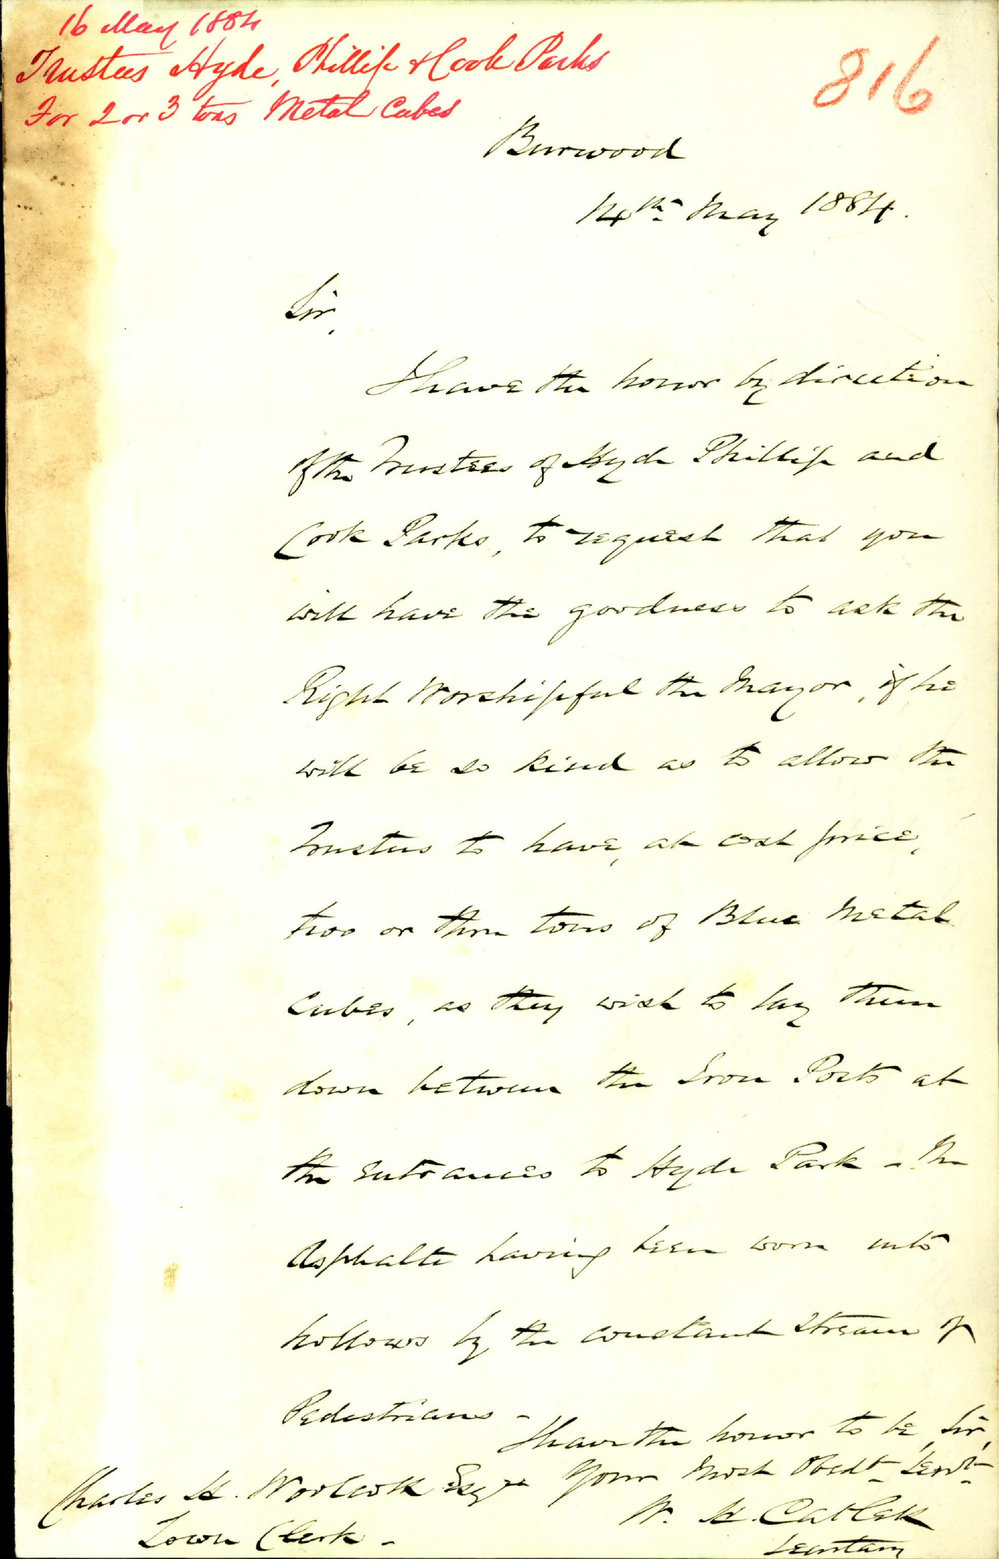 16 May 1884
Trustees Hyde, Phillip & Cook Parks
For 2 or 3 tons Metal Cubes
816
Burwood
14th May 1884.
Sir,
I have the honor by direction
of the Trustees of Hyde Phillip and
Cook Parks, to request that you
will have the goodness to ask the
Right Worshipful the Mayor, if he
will be so kind as to allow the
Trustees to have, at cost price,
two or three tons of Blue Metal
Cubes, as they wish to lay them
down between the Iron Posts at
the entrances to Hyde Park - The
Asphalte having been worn into
hollows by the constant stream of
Pedestrians -
I have the honor to be, Sir,
Your Most Obedt. Servt.
W. H. Catlett
Secretary
Charles H. Woolcott Esqre
Town Clerk -